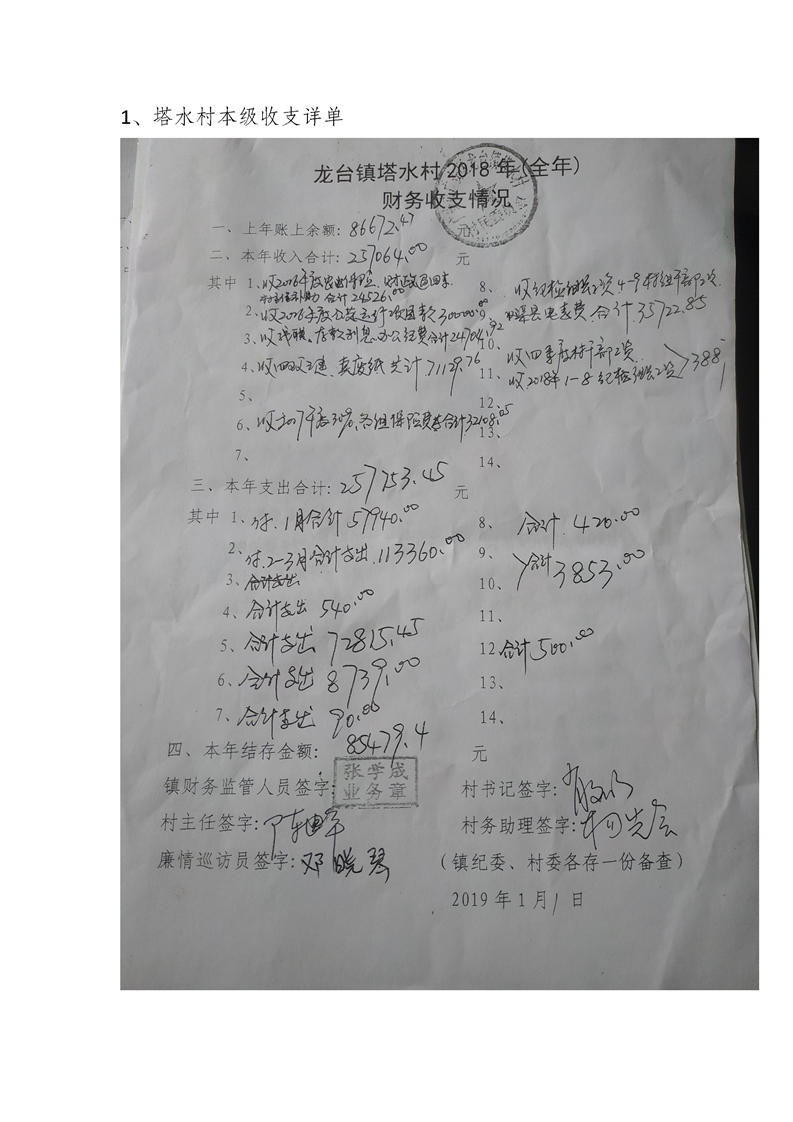 1、塔水村本级收支详单
龙台镇塔水村2018年(全年)
财务收支情况
一、上年账上余额: 86672.47 元
二、本年收入合计: 257064.00 元
其中 1、收2016年度农业保险 合计24526.00
2、收2016年度公益 300000.00
3、收 存款利息、办公经费合计24704.92
4、收 共计7119.76
5、
6、收2017年 各组保险费 合计32108.05
7、
8、收纪检组长工资 4-9村组干部工资
9、 电表费 合计.35722.85
10、收四季度村干部工资
11、收2018年1-8纪检组长工资 7388
12、
13、
14、
三、本年支出合计: 257753.45 元
其中 1、付.1月合计 57940.00
2、付.2-3月合计支出.113360.00
3、合计支出
4、合计支出 540.00
5、合计支出 72815.45
6、合计支出 8739.00
7、合计支出 90.00
8、合计.420.00
9、合计3853.00
10、
11、
12 合计500.00
13、
14、
四、本年结存金额: 85479.4 元
镇财务监管人员签字: 张学成
业务章
村书记签字:
村主任签字:
村务助理签字:
廉情巡访员签字: 邓晓琴
(镇纪委、村委各存一份备查)
2019年1月1日